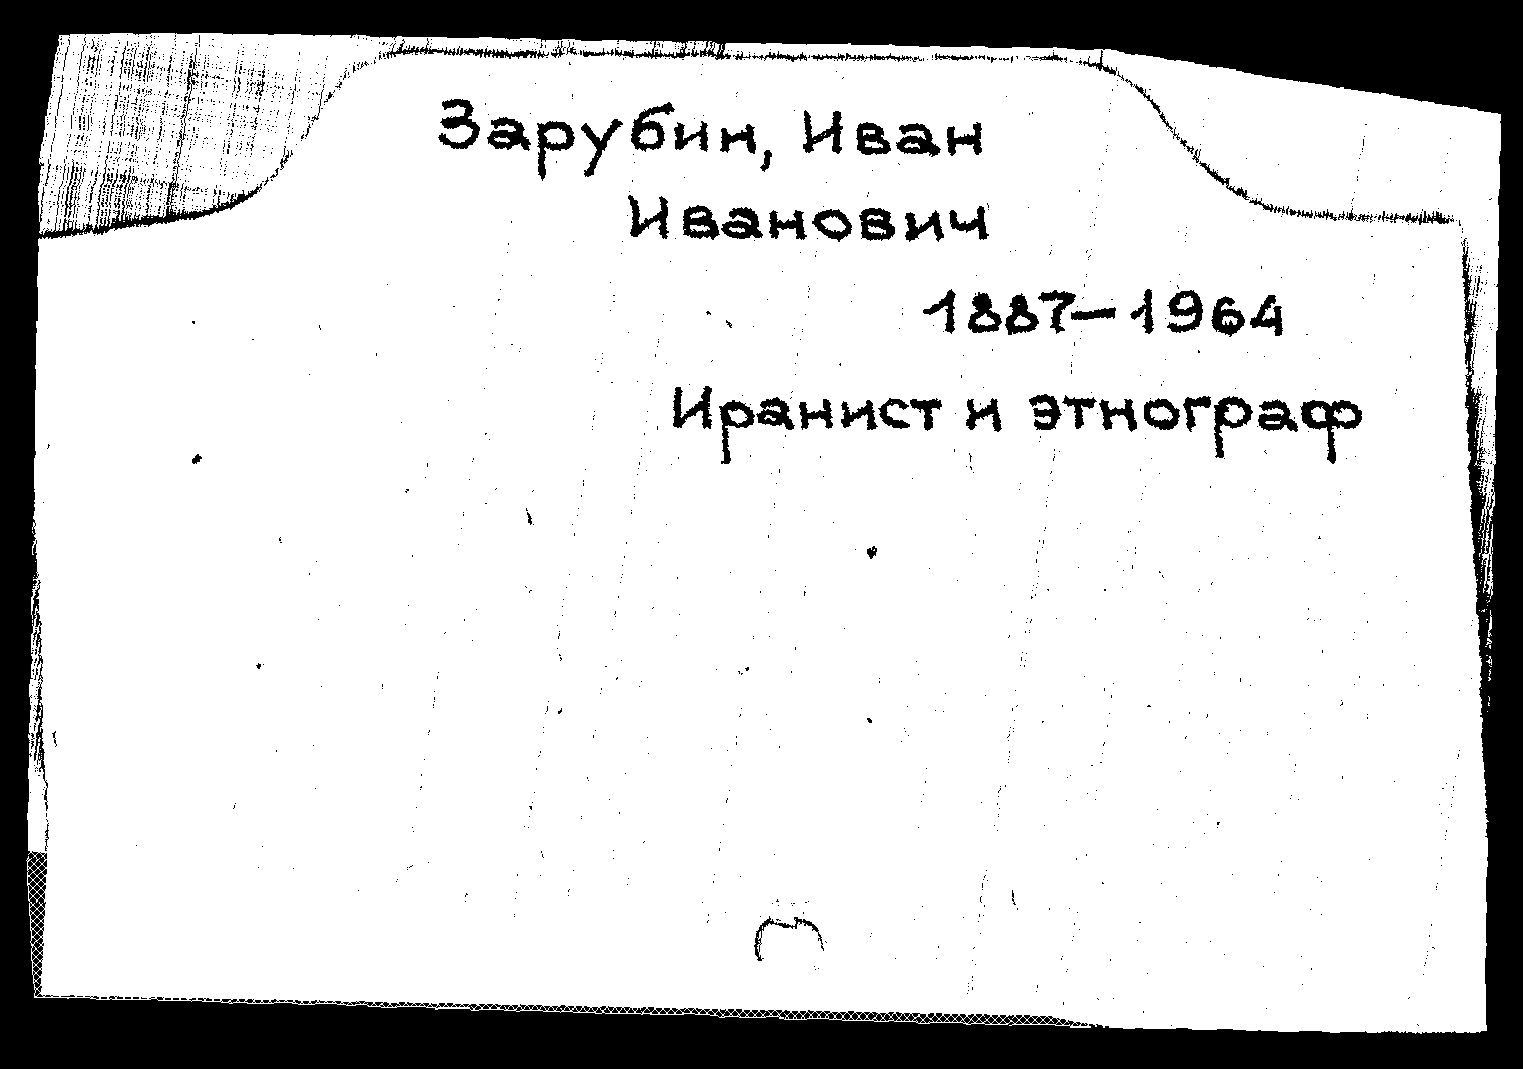 Зарубин, Иван
Иванович
1887–1964
Иранист и этнограф